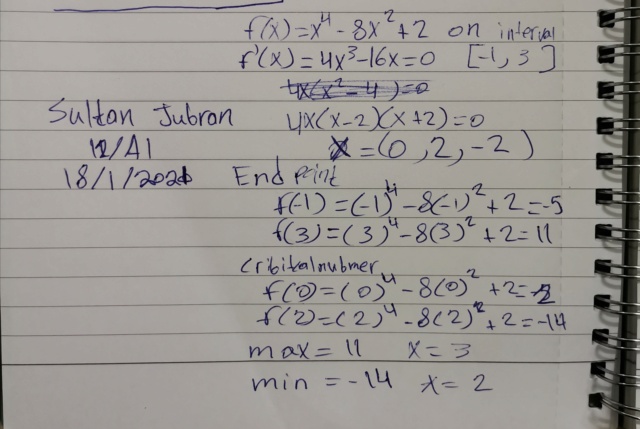 f(x)=x⁴-8x²+2 on interval
f'(x)=4x³-16x=0 [-1,3]
4x(x²-4)=0
Sultan Jubran
4x(x-2)(x+2)=0
12/A1
x=(0,2,-2)
18/1/2021
End Point
f(-1)=(-1)⁴-8(-1)²+2=-5
f(3)=(3)⁴-8(3)²+2=11
cribitalnubmer
f(0)=(0)⁴-8(0)²+2=2
f(2)=(2)⁴-8(2)²+2=-14
max=11 x=3
min=-14 x=2